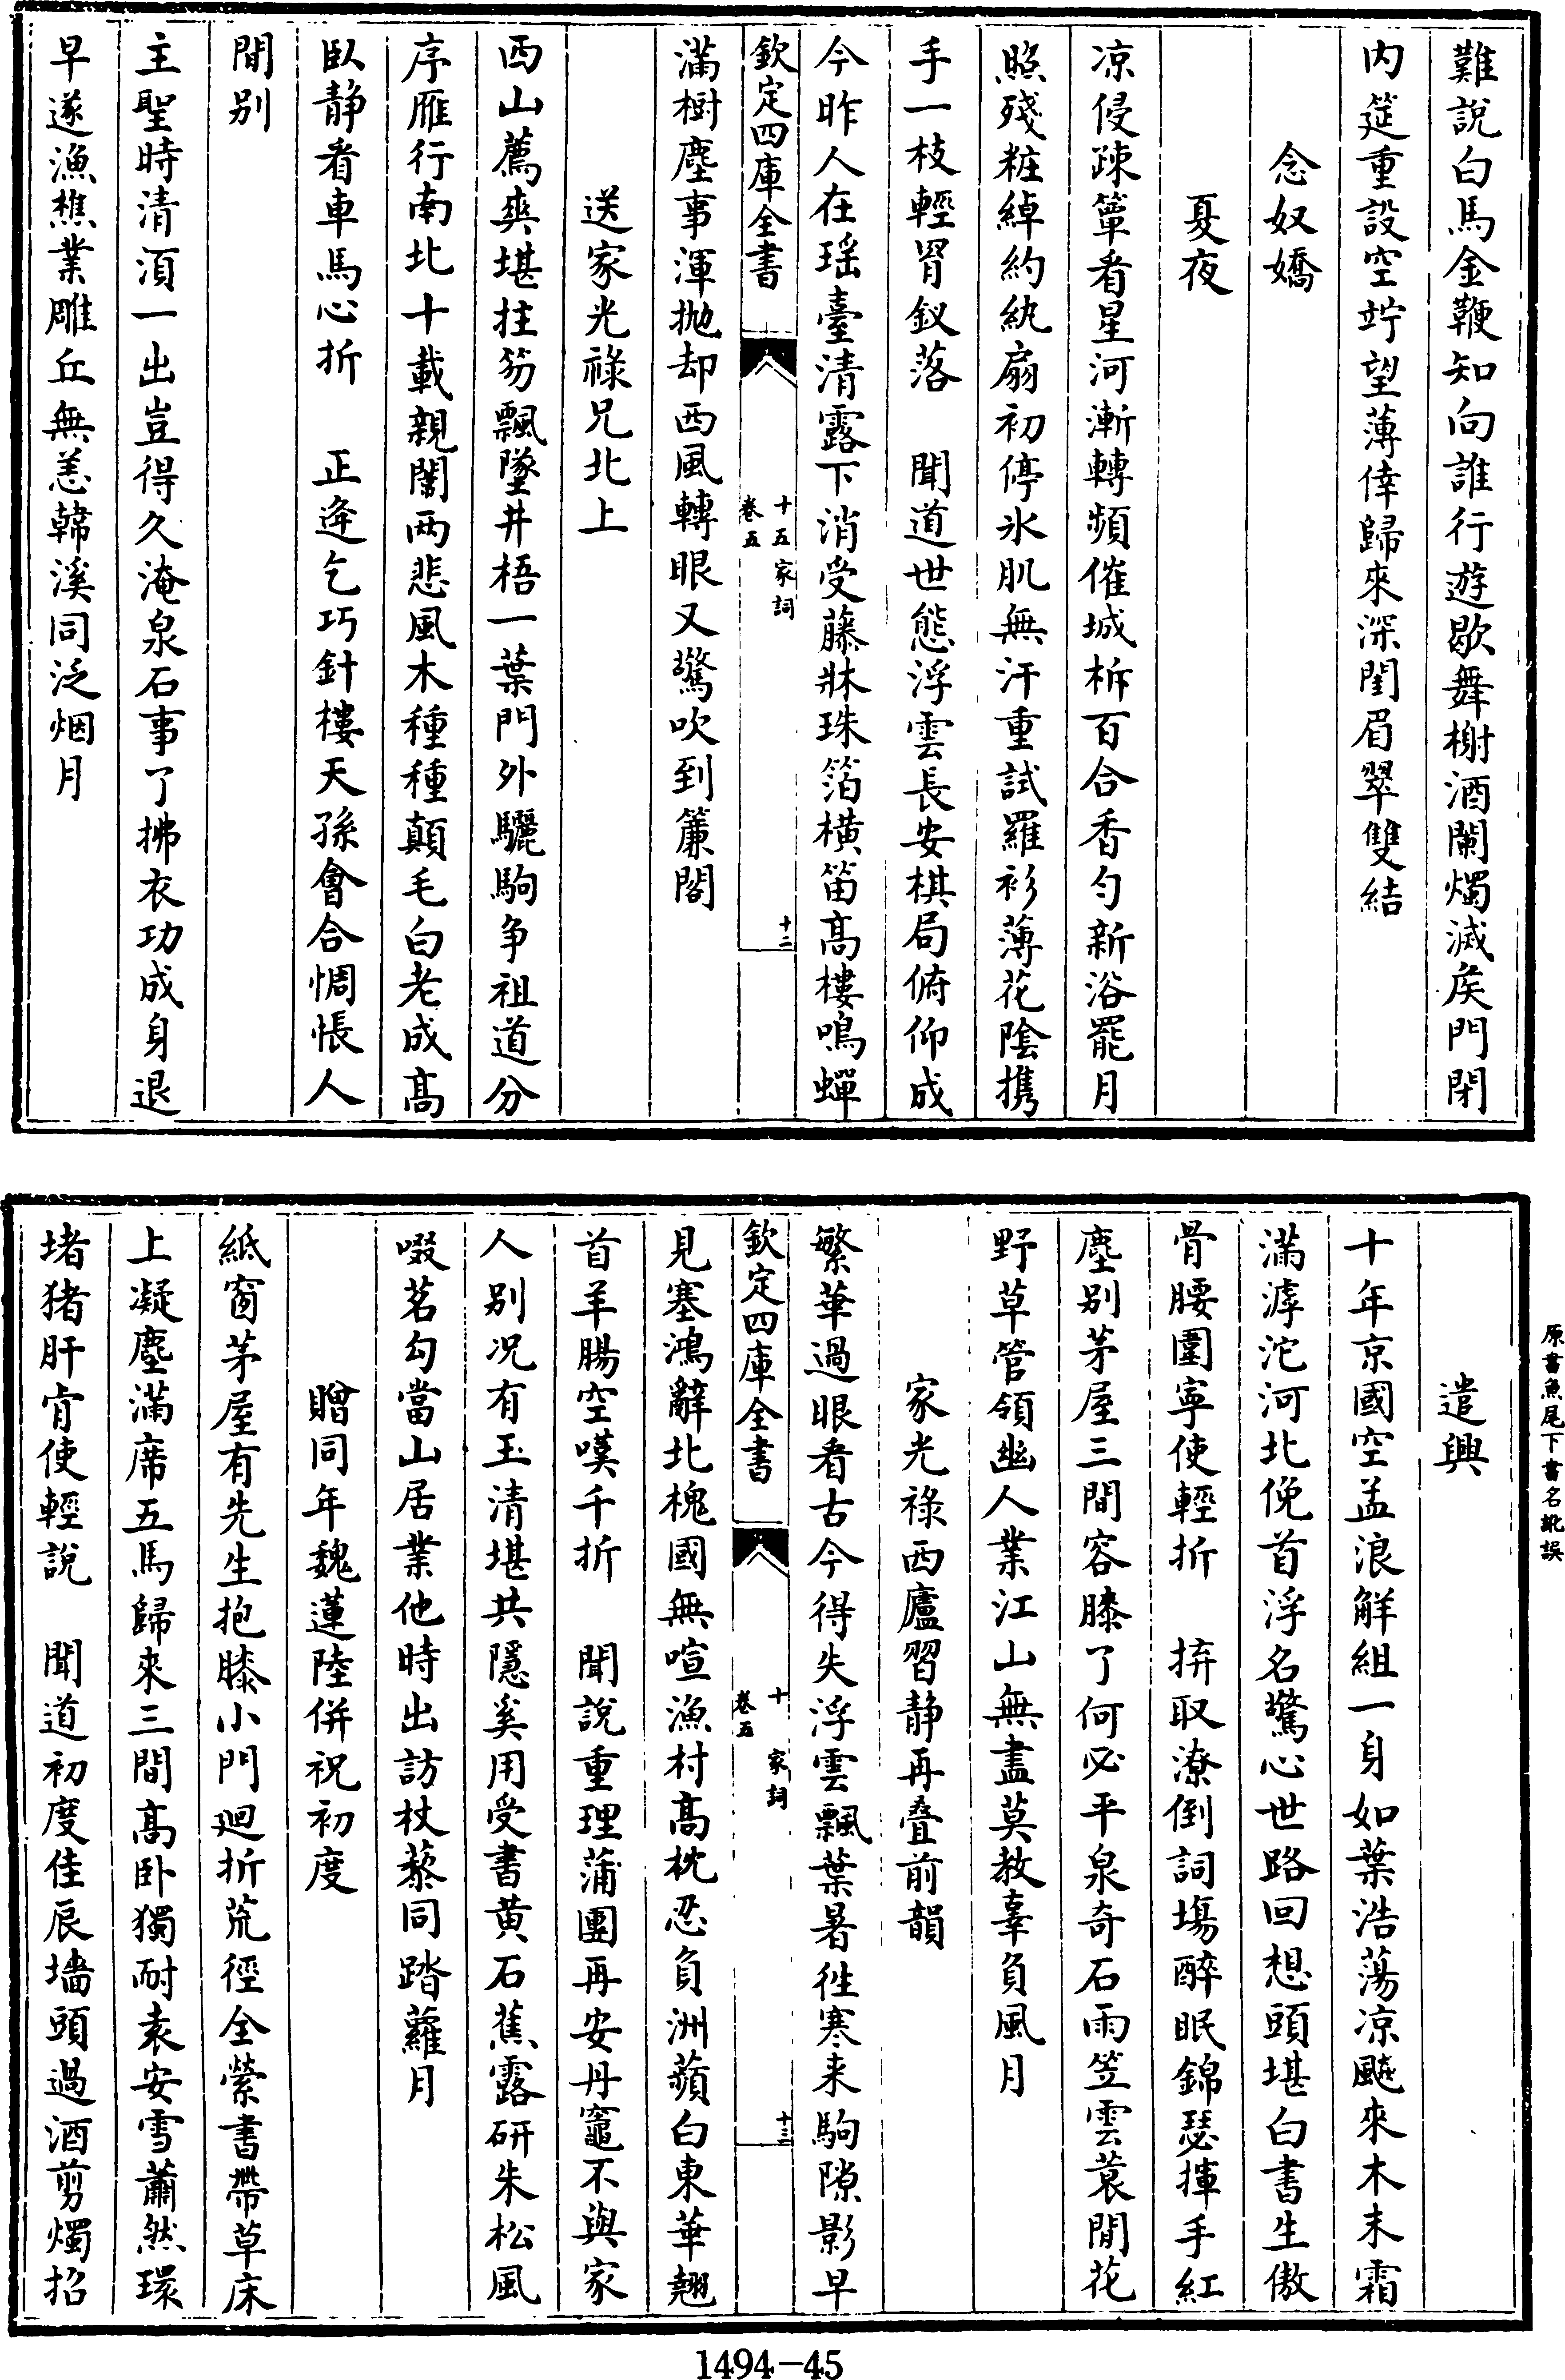 難說白馬金鞭知向誰行遊歇舞榭酒闌燭滅矦門閉
内筵重設空竚望薄倖歸來深閨眉翠雙結
念奴嬌
夏夜
凉侵疎簟看星河漸轉頻催城柝百合香勻新浴罷月
照殘粧綽約紈扇初停氷肌無汗重試羅衫薄花陰携
手一枝輕罥釵落　聞道世態浮雲長安棋局俯仰成
今昨人在瑶臺清露下消受藤牀珠箔横笛髙樓鳴蟬
欽定四庫全書
十五家詞
卷五
十二
滿樹塵事渾抛却西風轉眼又驚吹到簾閣
送家光祿兄北上
西山薦爽堪拄笏飄墜井梧一葉門外驪駒争祖道分
序雁行南北十載親闈兩悲風木種種顛毛白老成髙
臥静看車馬心折　正逢乞巧針樓天孫會合惆悵人
間别
主聖時清湏一出豈得久淹泉石事了拂衣功成身退
早遂漁樵業雕丘無恙韓溪同泛烟月
原書魚尾下書名訛誤
遣興
十年京國空孟浪解組一身如葉浩蕩凉颷來木末霜
滿滹沱河北俛首浮名驚心世路回想頭堪白書生傲
骨腰圍寧使輕折　拚取潦倒詞塲醉眠錦瑟揮手紅
塵别茅屋三間容膝了何必平泉奇石雨笠雲蓑閒花
野草管領幽人業江山無盡莫教辜負風月
家光祿西廬習静再疊前韻
繁華過眼看古今得失浮雲飄葉暑徃寒来駒隙影早
欽定四庫全書
十　家詞
卷五
十三
見塞鴻辭北槐國無喧漁村髙枕忍負洲蘋白東華翹
首羊腸空嘆千折　聞說重理蒲團再安丹竈不與家
人别况有玉清堪共隱奚用受書黄石蕉露研朱松風
啜茗勾當山居業他時出訪杖藜同踏蘿月
贈同年魏蓮陸併祝初度
紙窗茅屋有先生抱膝小門廻折荒徑全縈書帶草床
上凝塵滿席五馬歸來三間髙卧獨耐袁安雪蕭然環
堵猪肝肯使輕說　聞道初度佳辰墻頭過酒剪燭招
1494—45